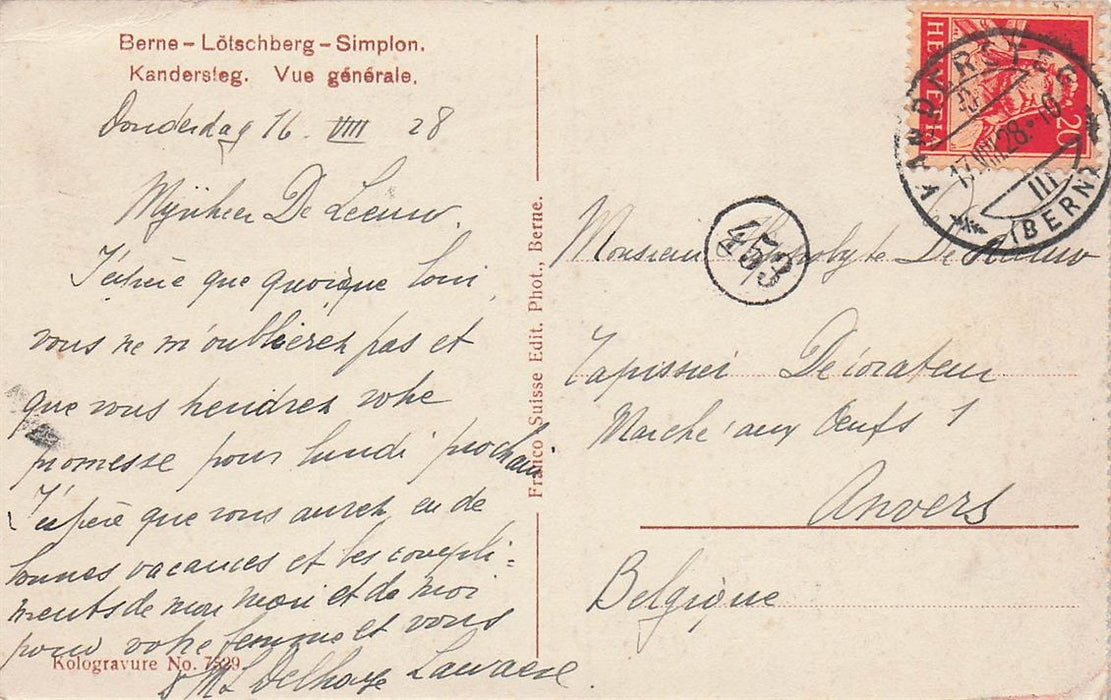 Berne – Lötschberg – Simplon.
Kandersteg. Vue générale.
Donderdag 16 VIII 28
Mijnheer De Leeuw.
J'espère que quoique loin
vous ne m'oublierez pas et
que vous tiendrez votre
promesse pour lundi prochain
J'espère que vous aurez eu de
bonnes vacances et les compli-
ments de mon mari et de moi
pour votre femme et vous
Delhaye Lauwaese
Kologravure No. 7529.
Franco Suisse Edit. Phot., Berne.
HELVETIA
20
KANDERSTEG
17.VIII.28.
III
(BERN)
453
Monsieur Hippolyte De Leeuw
Tapissier Décorateur
Marché aux Oeufs 1
Anvers
Belgique